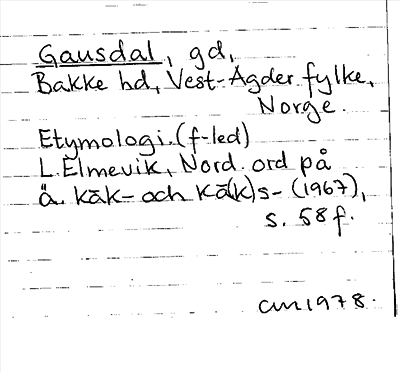 Gausdal, gd,
Bakke hd, Vest-Agder fylke,
Norge.
Etymologi. (f-led)
L. Elmevik, Nord. ord på
ä. kāk- och kā(k)s- (1967),
s. 58 f.
cm 1978.